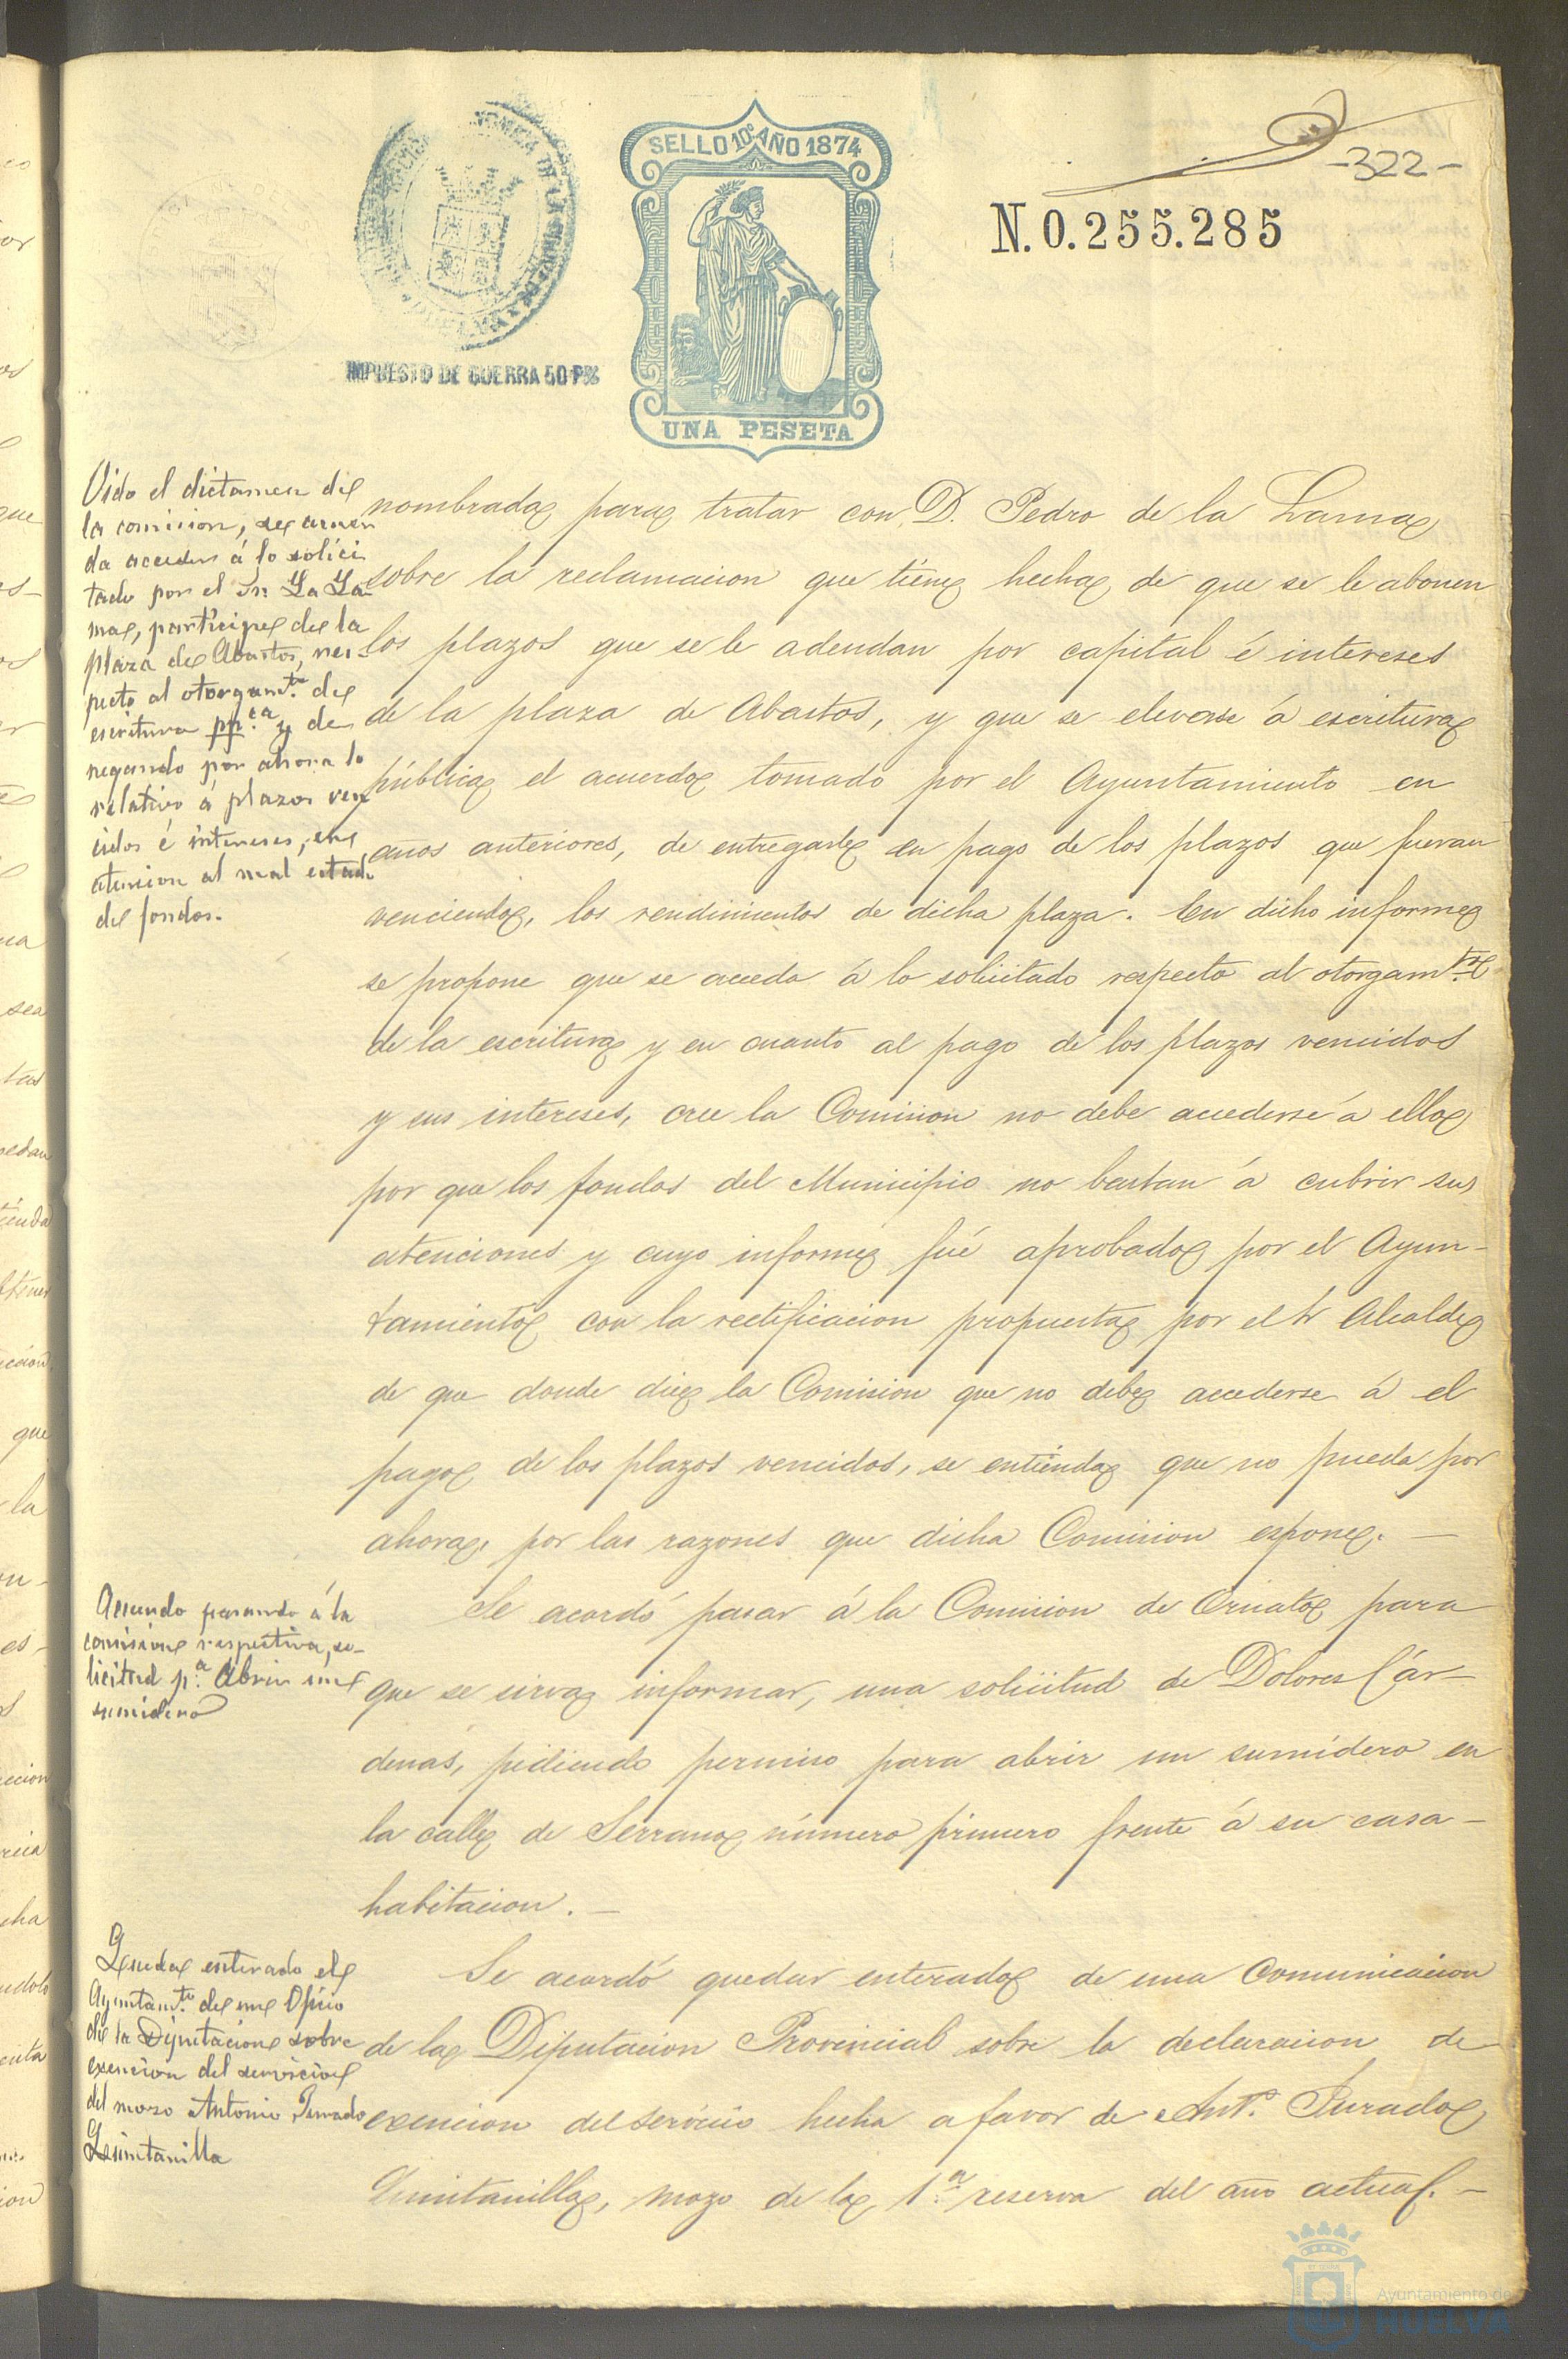 SELLO 10º AÑO 1874
-322-
N.0.255.285
IMPUESTO DE GUERRA 50 P%
UNA PESETA
Oido el dictamen de
la comision, se acuer
da acceder á lo solici
tado por el Sr. La La-
ma, participe de la
plaza de Abastos, res-
pecto al otorgamto. de
escritura ppca. y de
negando por ahora lo
relativo á plazos ven
cidos é intereses, en
atencion al mal estado
de fondos.
nombrada para tratar con D. Pedro de la Lama
sobre la reclamacion que tiene hecha de que se le abonen
los plazos que se le adeudan por capital é intereses
de la plaza de Abastos, y que se elevase á escritura
pública el acuerdo tomado por el Ayuntamiento en
años anteriores, de entregarle en pago de los plazos que fueran
venciendo, los rendimientos de dicha plaza. En dicho informe
se propone que se acceda á lo solicitado respecto al otorgamto.
de la escritura y en cuanto al pago de los plazos vencidos
y sus intereses, cree la Comision no debe accederse á ello
por que los fondos del Municipio no bastan á cubrir sus
atenciones y cuyo informe fué aprobado por el Ayun-
tamiento con la rectificacion propuesta por el Sr Alcalde
de que donde dice la Comision que no debe accederse á el
pago de los plazos vencidos, se entienda que no pueda por
ahora, por las razones que dicha Comision espone. —
Acuerdo pasando á la
comision respectiva, so-
licitud pa. abrir un
sumidero
Se acordó pasar á la Comision de Ornato para
que se sirva informar, una solicitud de Dolores Cár-
denas, pidiendo permiso para abrir un sumidero en
la calle de Serrano número primero frente á su casa-
habitacion. —
Queda enterado el
Ayuntamto. de un Oficio
de la Diputacion sobre
exencion del servicio
del mozo Antonio Jurado
Quintanilla
Se acordó quedar enterado de una Comunicacion
de la Diputacion Provincial sobre la declaracion de
exencion del servicio hecha a favor de Anto. Jurado
Quintanilla, mozo de la 1.a reserva del año actual. —
Ayuntamiento de
HUELVA